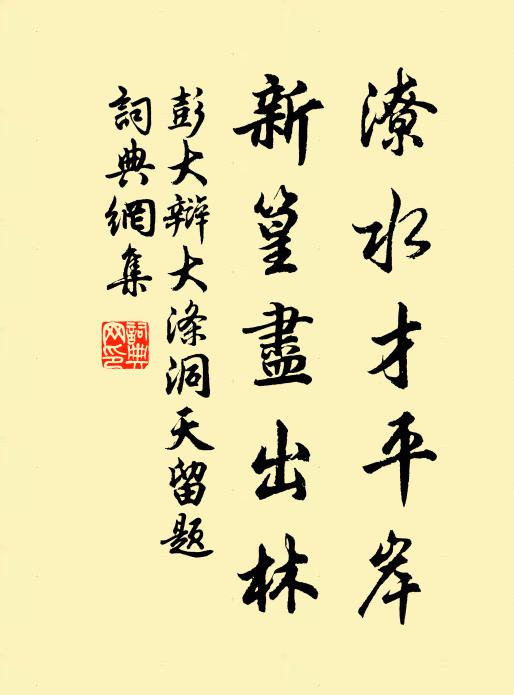 潦水才平岸
新篁盡出林
彭大辯大滌洞天留題
詞典網集
詞典網印